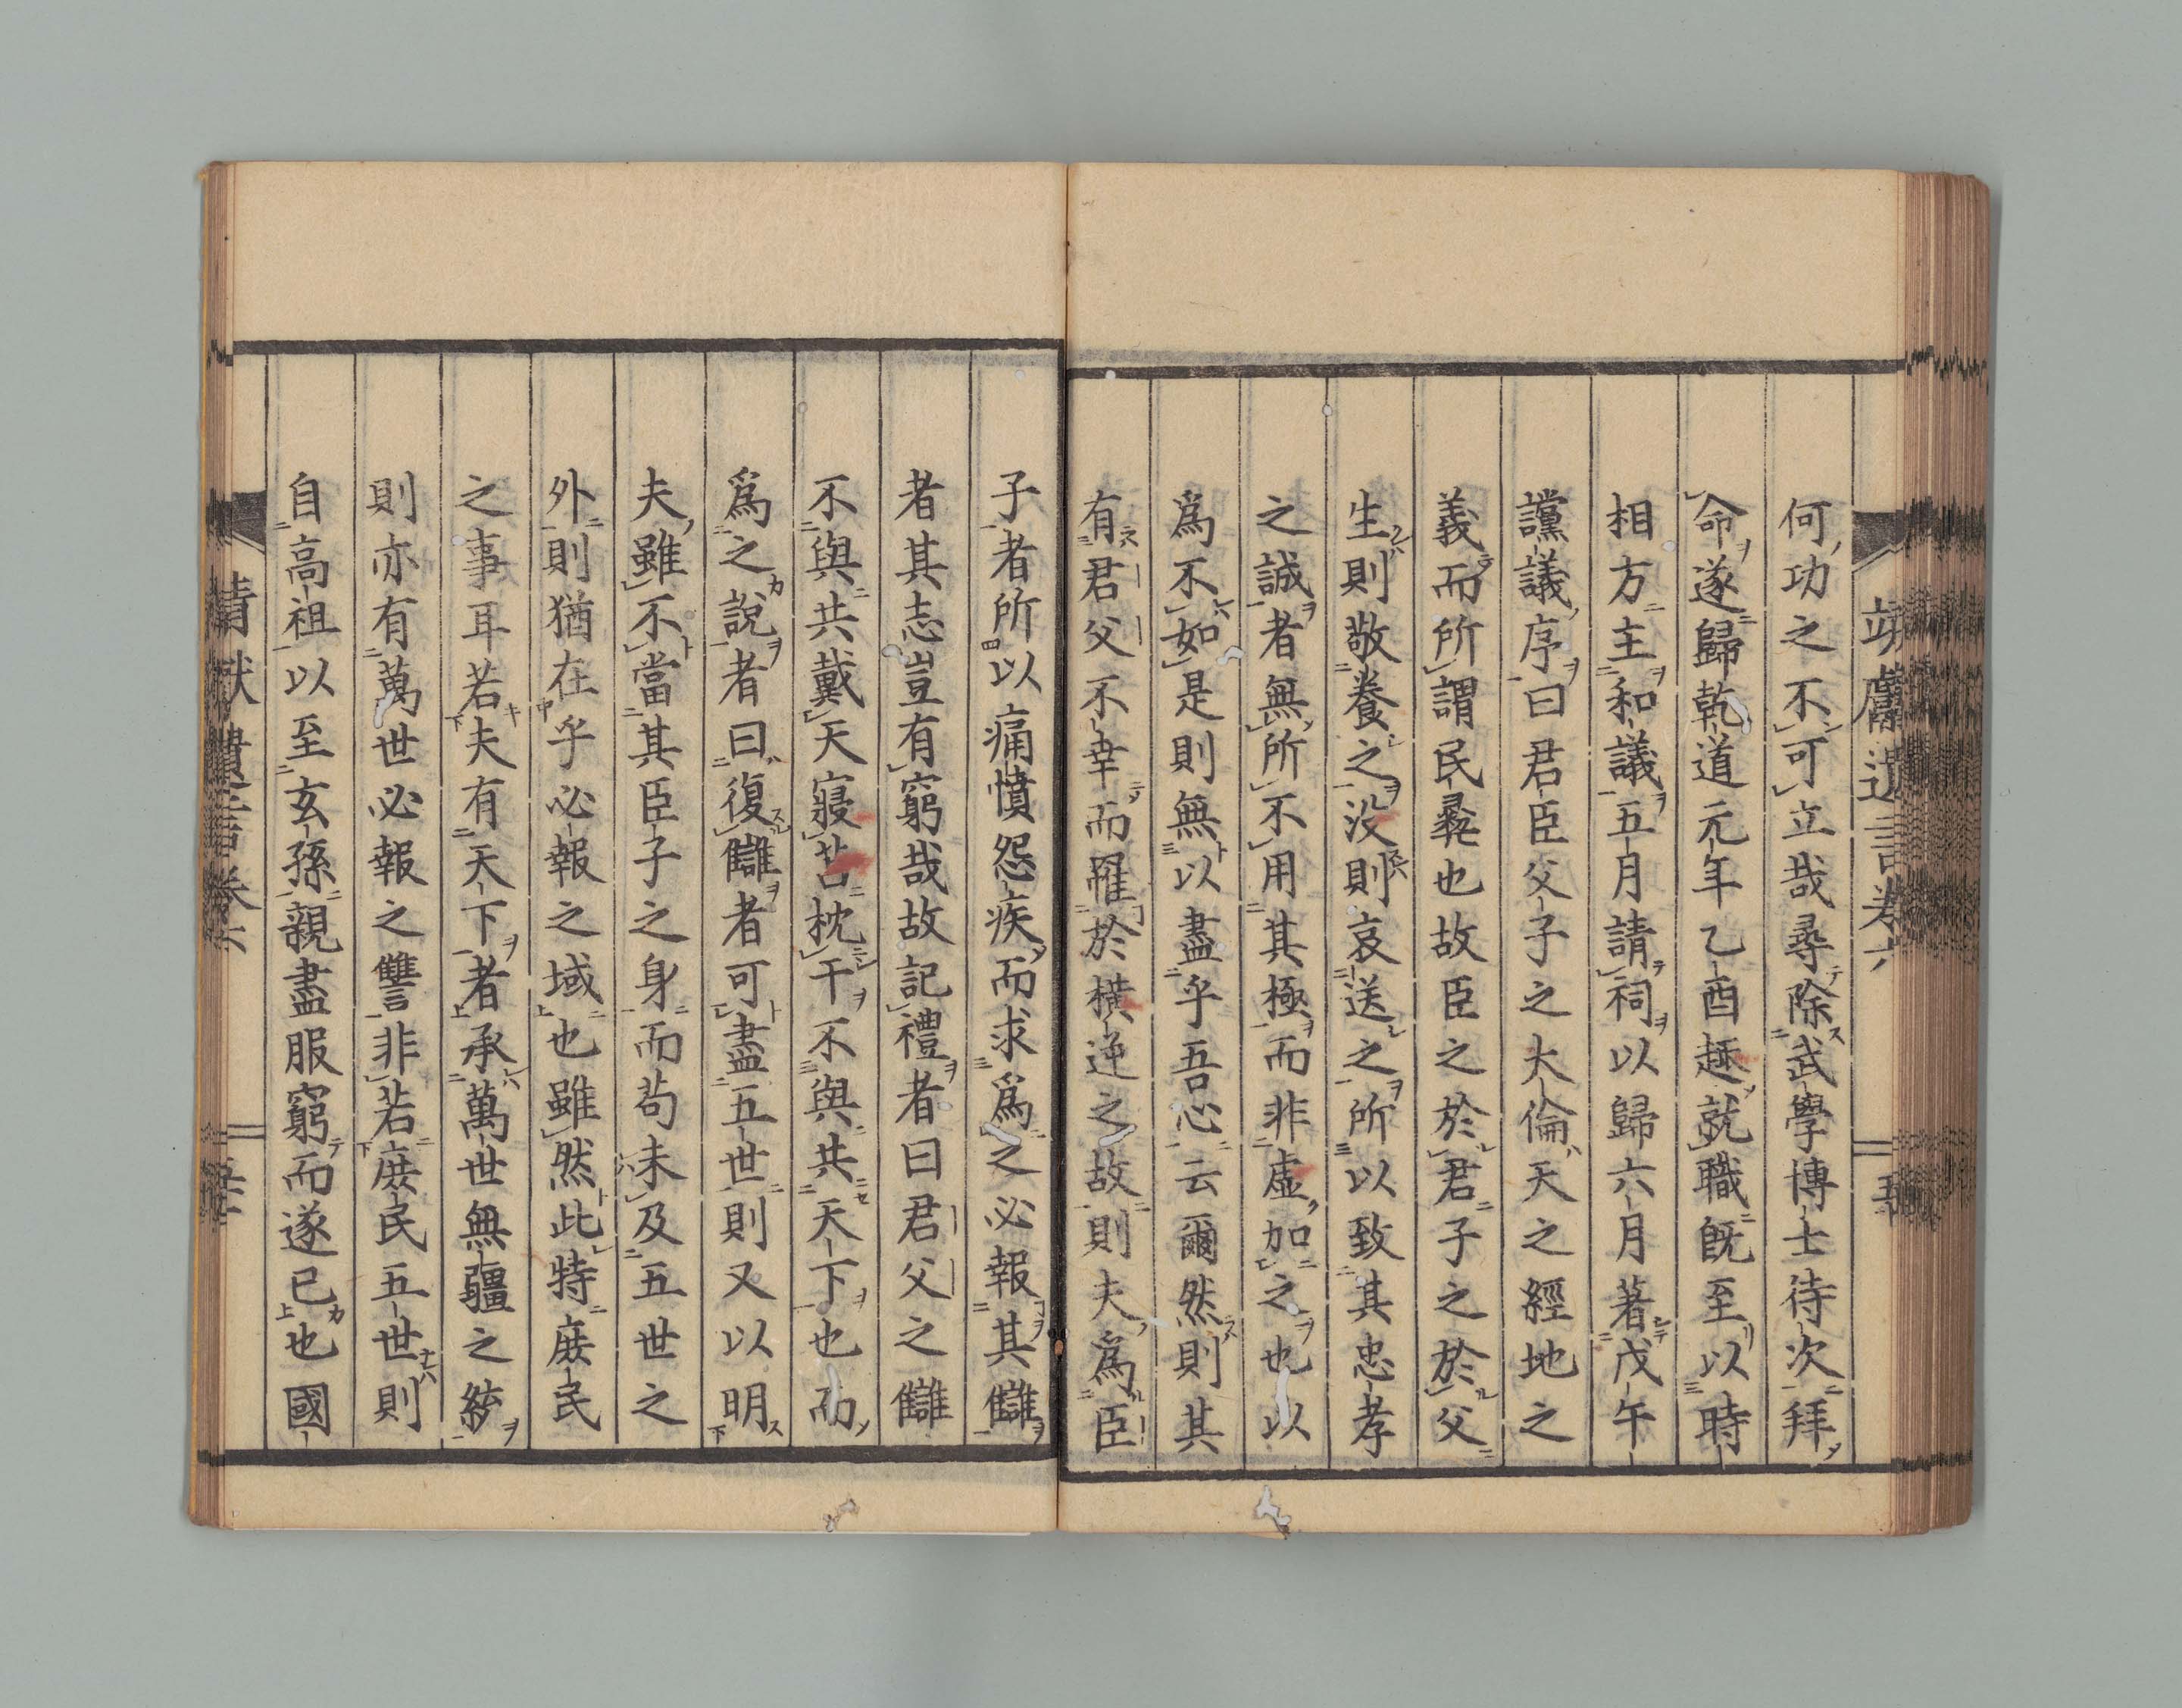 靖獻遺言卷六
何功之不可立哉尋除武學博士待次拜
命遂歸乾道元年乙酉趣就職旣至以時
相方主和議五月請祠以歸六月著戊午
讜議序曰君臣父子之大倫天之經地之
義而所謂民彝也故臣之於君子之於父
生則敬養之沒則哀送之所以致其忠孝
之誠者無所不用其極而非虛加之也以
爲不如是則無以盡乎吾心云爾然則其
有君父不幸而罹於橫逆之故則夫爲臣
子者所以痛憤怨疾而求爲之必報其讎
者其志豈有窮哉故記禮者曰君父之讎
不與共戴天寢苫枕干不與共天下也而
爲之說者曰復讎者可盡五世則又以明
夫雖不當其臣子之身而苟未及五世之
外則猶在乎必報之域也雖然此特庶民
之事耳若夫有天下者承萬世無疆之統
則亦有萬世必報之讐非若庶民五世則
自高祖以至玄孫親盡服窮而遂已也國
靖獻遺言卷六